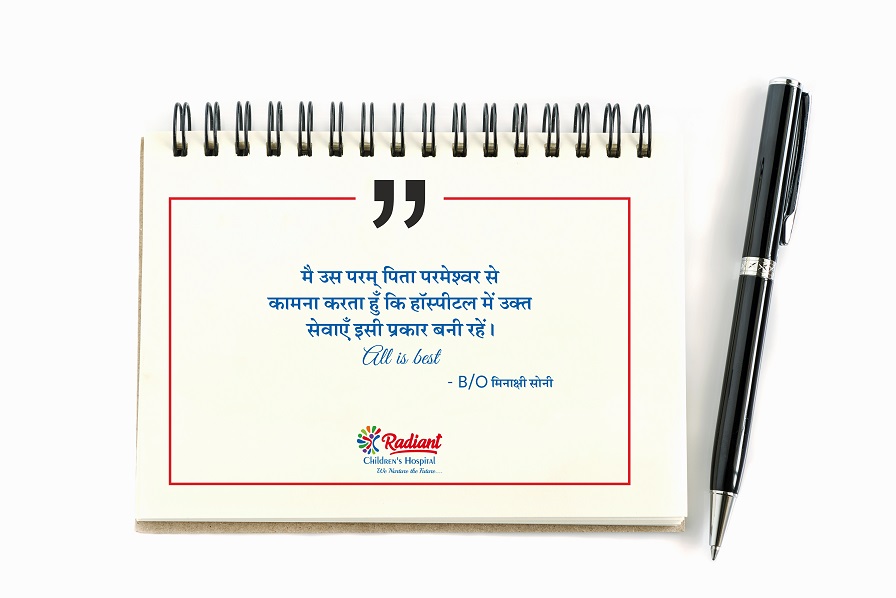 ”
मै उस परम् पिता परमेश्वर से
कामना करता हुँ कि हॉस्पीटल में उक्त
सेवाएँ इसी प्रकार बनी रहें।
All is best
- B/O मिनाक्षी सोनी
Radiant
Children's Hospital
We Nurture the Future....